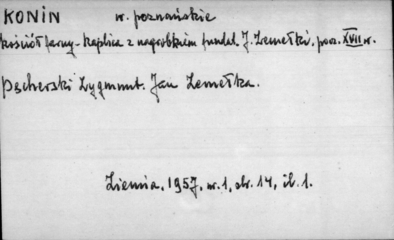 KONIN w. poznańskie
kościół farny - kaplica z nagrobkiem fundat. J. Zemełki, pocz. XVII w.
Pęcherski Zygmunt. Jan Zemełka.
Ziemia, 1957, nr. 1, str. 14, il. 1.